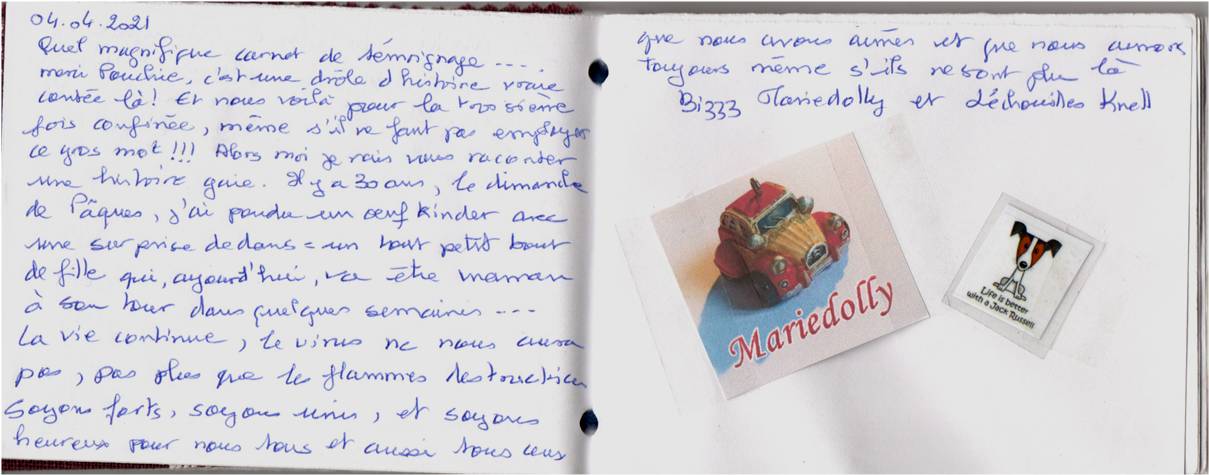 04.04.2021
Quel magnifique carnet de témoignage ....
merci Pouchie, c'est une drôle d'histoire vraie
contée là! Et nous voilà pour la troisième
fois confinée, même s'il ne faut pas employer
ce gros mot!!! Alors moi je vais vous raconter
une histoire gaie. Il y a 30 ans, le dimanche
de Pâques, j'ai pondu un oeuf kinder avec
une surprise dedans = un tout petit bout
de fille qui, aujourd'hui, va être maman
à son tour dans quelques semaines ---
La vie continue, le virus ne nous aura
pas, pas plus que les flammes destructrices
Soyons forts, soyons unis, et soyons
heureux pour nous tous et aussi tous ceux
que nous avons aimés et que nous aimons
toujours même s'ils ne sont plus là
Bizzz Mariedolly et Knell
Mariedolly
Life is better
with a Jack Russell